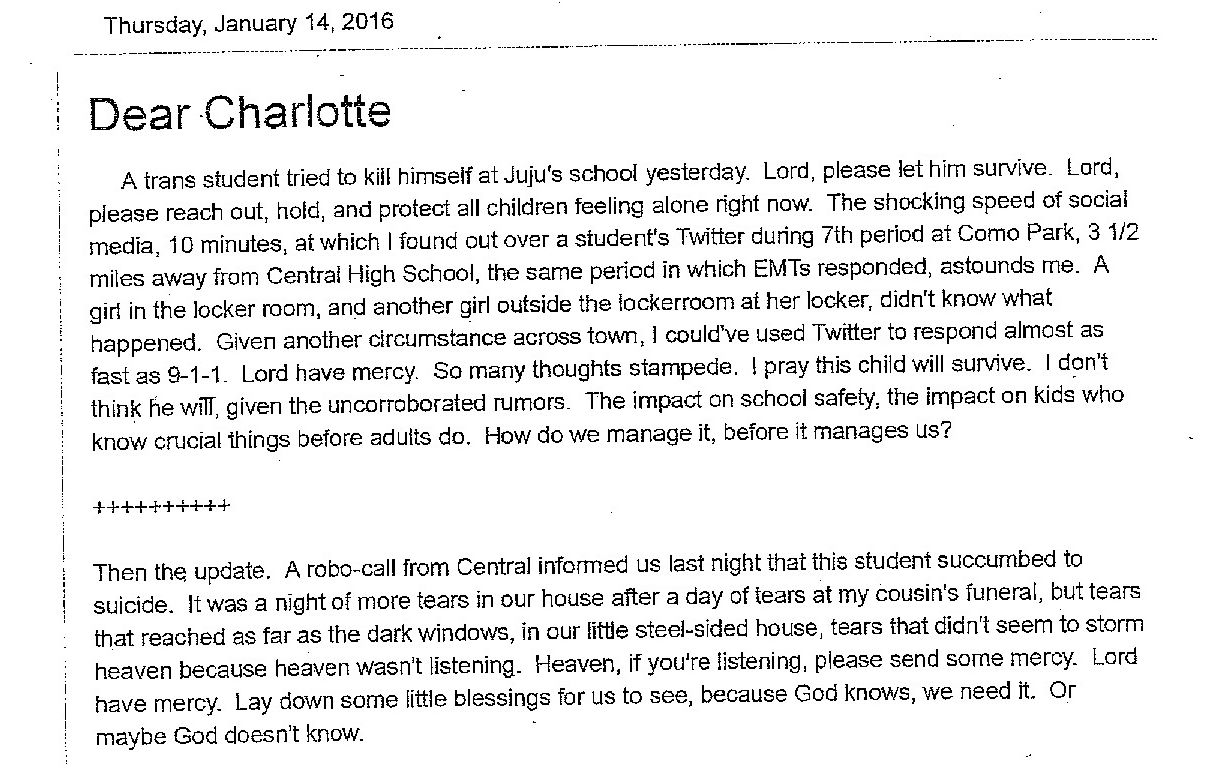 Thursday, January 14, 2016
Dear Charlotte
A trans student tried to kill himself at Juju's school yesterday. Lord, please let him survive. Lord,
please reach out, hold, and protect all children feeling alone right now. The shocking speed of social
media, 10 minutes, at which I found out over a student's Twitter during 7th period at Como Park, 3 1/2
miles away from Central High School, the same period in which EMTs responded, astounds me. A
girl in the locker room, and another girl outside the lockerroom at her locker, didn't know what
happened. Given another circumstance across town, I could've used Twitter to respond almost as
fast as 9-1-1. Lord have mercy. So many thoughts stampede. I pray this child will survive. I don't
think he will, given the uncorroborated rumors. The impact on school safety, the impact on kids who
know crucial things before adults do. How do we manage it, before it manages us?
++++++++++
Then the update. A robo-call from Central informed us last night that this student succumbed to
suicide. It was a night of more tears in our house after a day of tears at my cousin's funeral, but tears
that reached as far as the dark windows, in our little steel-sided house, tears that didn't seem to storm
heaven because heaven wasn't listening. Heaven, if you're listening, please send some mercy. Lord
have mercy. Lay down some little blessings for us to see, because God knows, we need it. Or
maybe God doesn't know.